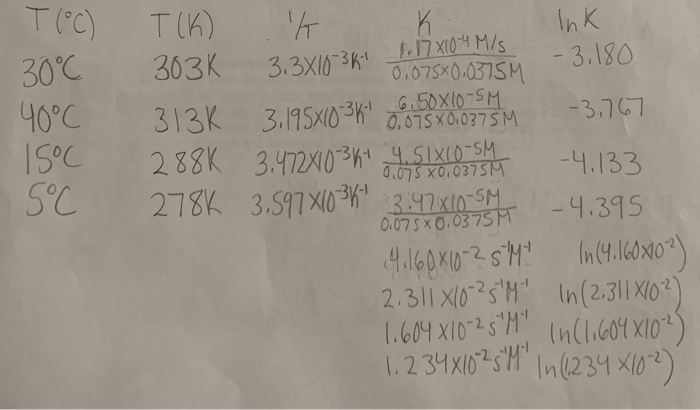 T(°C) T(K) 1/T K ln K
30°C 303K 3.3X10-3K-1 1.17X10-4 M/s / 0.075X0.0375M -3.180
40°C 313K 3.195X10-3K-1 6.50X10-5M / 0.075X0.0375M -3.767
15°C 288K 3.472X10-3K-1 4.51X10-5M / 0.075X0.0375M -4.133
5°C 278K 3.597X10-3K-1 3.47X10-5M / 0.075X0.0375M -4.395
4.160X10-2 s-1M-1 ln(4.160X10-2)
2.311X10-2 s-1M-1 ln(2.311X10-2)
1.604X10-2 s-1M-1 ln(1.604X10-2)
1.234X10-2 s-1M-1 ln(1.234X10-2)